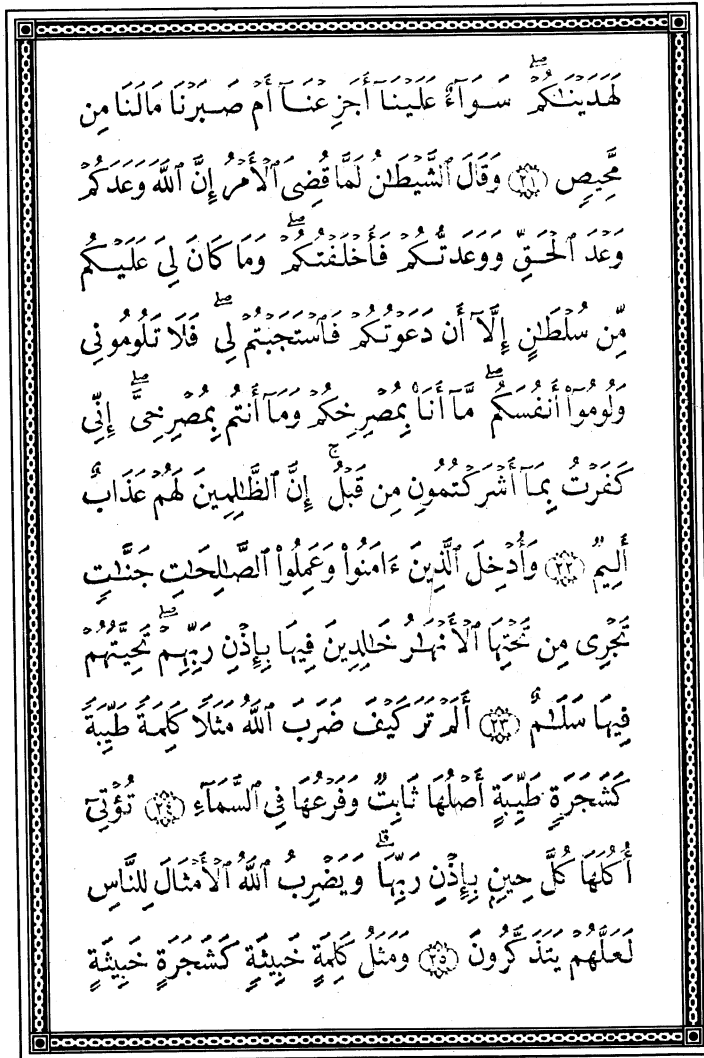 لَهَدَيْنَٰكُمْ ۖ سَوَآءٌ عَلَيْنَآ أَجَزِعْنَآ أَمْ صَبَرْنَا مَا لَنَا مِن
مَّحِيصٍ ﴿٢١﴾ وَقَالَ ٱلشَّيْطَٰنُ لَمَّا قُضِىَ ٱلْأَمْرُ إِنَّ ٱللَّهَ وَعَدَكُمْ
وَعْدَ ٱلْحَقِّ وَوَعَدتُّكُمْ فَأَخْلَفْتُكُمْ ۖ وَمَا كَانَ لِىَ عَلَيْكُم
مِّن سُلْطَٰنٍ إِلَّآ أَن دَعَوْتُكُمْ فَٱسْتَجَبْتُمْ لِى ۖ فَلَا تَلُومُونِى
وَلُومُوٓا۟ أَنفُسَكُم ۖ مَّآ أَنَا۠ بِمُصْرِخِكُمْ وَمَآ أَنتُم بِمُصْرِخِىَّ ۖ إِنِّى
كَفَرْتُ بِمَآ أَشْرَكْتُمُونِ مِن قَبْلُ ۚ إِنَّ ٱلظَّٰلِمِينَ لَهُمْ عَذَابٌ
أَلِيمٌ ﴿٢٢﴾ وَأُدْخِلَ ٱلَّذِينَ ءَامَنُوا۟ وَعَمِلُوا۟ ٱلصَّٰلِحَٰتِ جَنَّٰتٍ
تَجْرِى مِن تَحْتِهَا ٱلْأَنْهَٰرُ خَٰلِدِينَ فِيهَا بِإِذْنِ رَبِّهِمْ ۖ تَحِيَّتُهُمْ
فِيهَا سَلَٰمٌ ﴿٢٣﴾ أَلَمْ تَرَ كَيْفَ ضَرَبَ ٱللَّهُ مَثَلًا كَلِمَةً طَيِّبَةً
كَشَجَرَةٍ طَيِّبَةٍ أَصْلُهَا ثَابِتٌ وَفَرْعُهَا فِى ٱلسَّمَآءِ ﴿٢٤﴾ تُؤْتِىٓ
أُكُلَهَا كُلَّ حِينٍۭ بِإِذْنِ رَبِّهَا ۗ وَيَضْرِبُ ٱللَّهُ ٱلْأَمْثَالَ لِلنَّاسِ
لَعَلَّهُمْ يَتَذَكَّرُونَ ﴿٢٥﴾ وَمَثَلُ كَلِمَةٍ خَبِيثَةٍ كَشَجَرَةٍ خَبِيثَةٍ